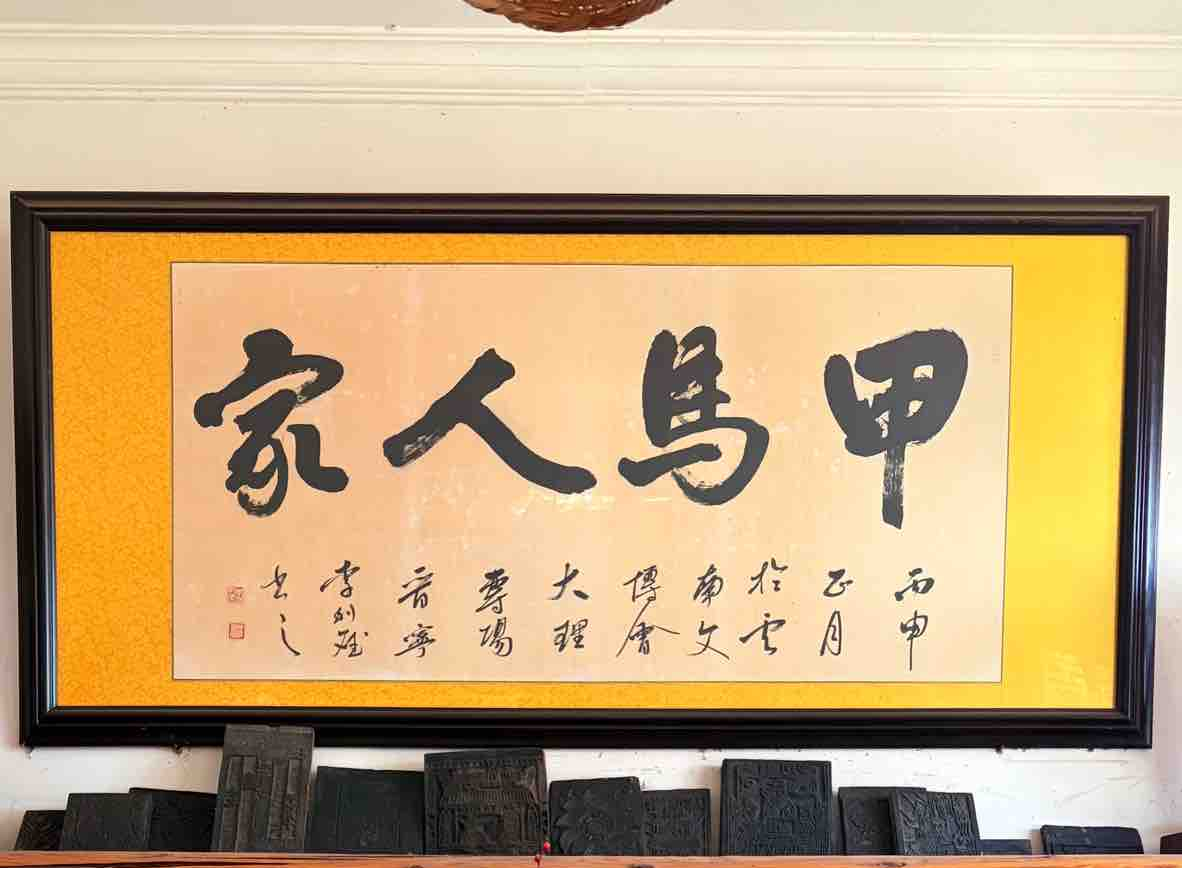 甲馬人家
丙申
正月
於雲
南文
博會
大理
專場
晋寧
李
書之